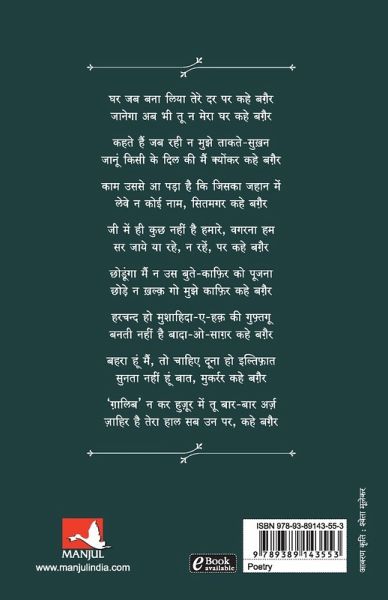 घर जब बना लिया तेरे दर पर कहे बग़ैर
जानेगा अब भी तू न मेरा घर कहे बग़ैर
कहते हैं जब रही न मुझे ताकते-सुख़न
जानूं किसी के दिल की मैं क्योंकर कहे बग़ैर
काम उससे आ पड़ा है कि जिसका जहान में
लेवे न कोई नाम, सितमगर कहे बग़ैर
जी में ही कुछ नहीं है हमारे, वगरना हम
सर जाये या रहे, न रहें, पर कहे बग़ैर
छोडूंगा मैं न उस बुते-काफ़िर को पूजना
छोड़े न ख़ल्क़ गो मुझे काफ़िर कहे बग़ैर
हरचन्द हो मुशाहिदा-ए-हक़ की गुफ़्तगू
बनती नहीं है बादा-ओ-साग़र कहे बग़ैर
बहरा हूं मैं, तो चाहिए दूना हो इल्तिफ़ात
सुनता नहीं हूं बात, मुकर्रर कहे बग़ैर
‘ग़ालिब’ न कर हुज़ूर में तू बार-बार अर्ज़
ज़ाहिर है तेरा हाल सब उन पर, कहे बग़ैर
MANJUL
www.manjulindia.com
eBook
available
ISBN 978-93-89143-55-3
9 789389 143553
Poetry
आवरण कृति : श्वेता मूलेकर